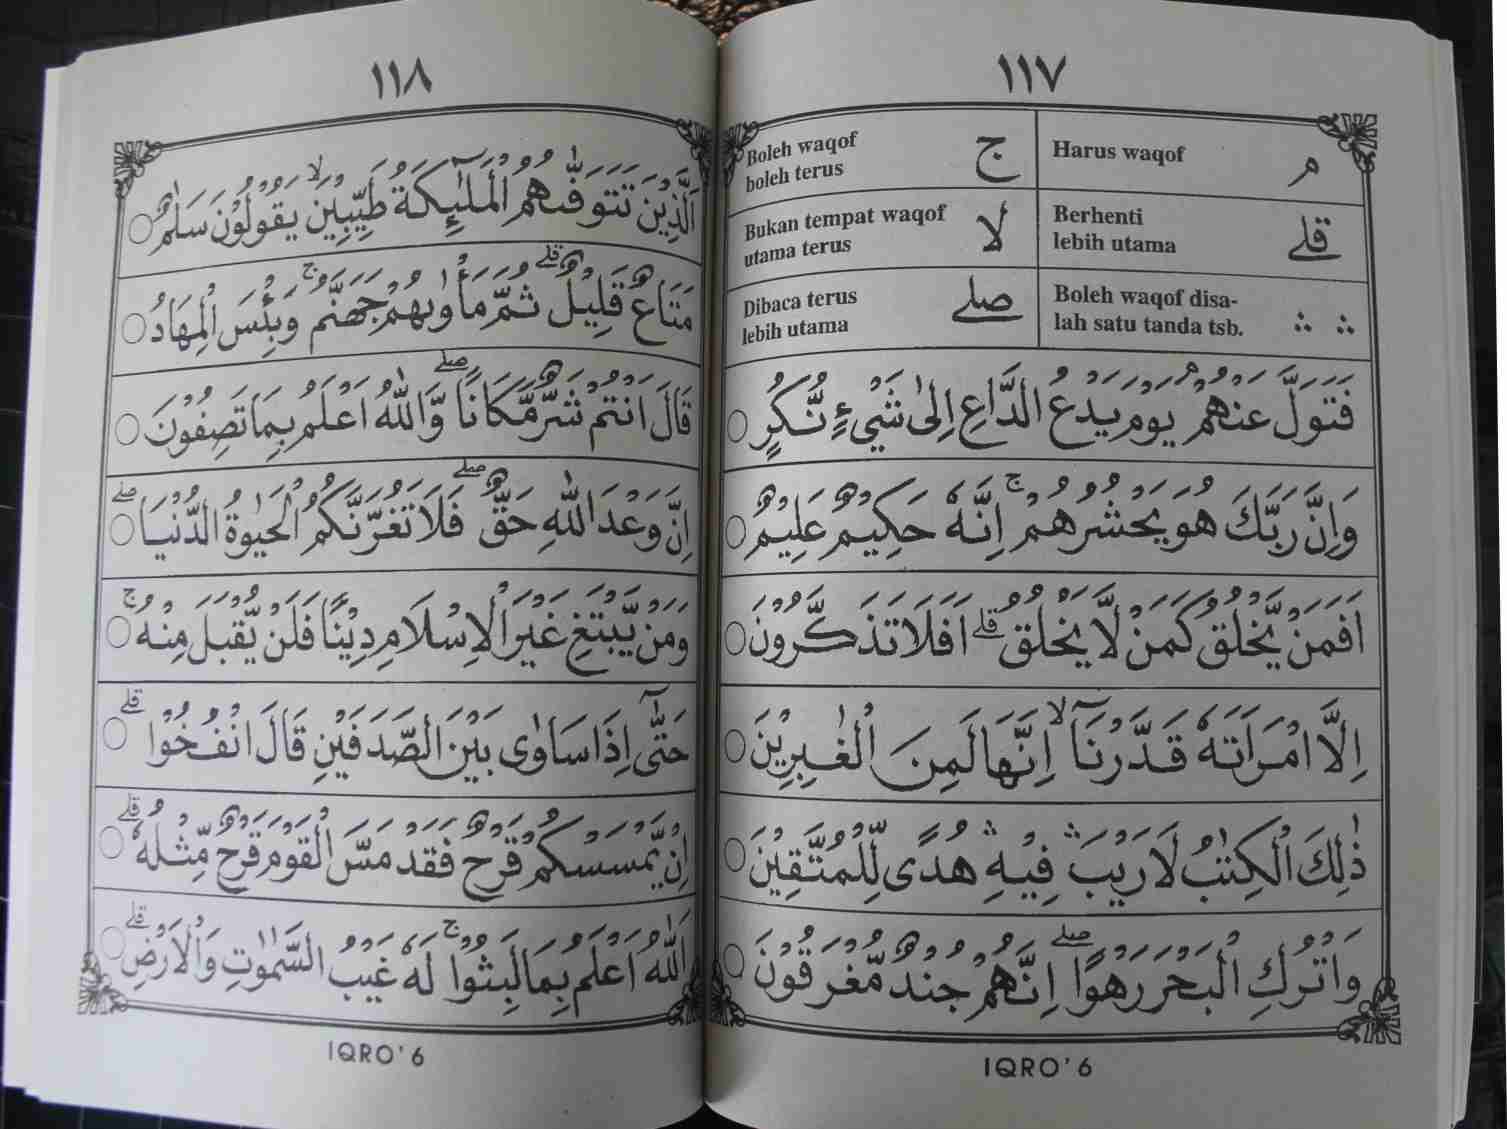 ١١٧
م Harus waqof
ج Boleh waqof
boleh terus
قلے Berhenti
lebih utama
لا Bukan tempat waqof
utama terus
ۛ ۛ Boleh waqof disa-
lah satu tanda tsb.
صلے Dibaca terus
lebih utama
فَتَوَلَّ عَنْهُمْ ۘ يَوْمَ يَدْعُ الدَّاعِ اِلٰى شَيْءٍ نُّكُرٍ ○
وَاِنَّ رَبَّكَ هُوَ يَحْشُرُهُمْ ۚ اِنَّهٗ حَكِيْمٌ عَلِيْمٌ ○
اَفَمَنْ يَّخْلُقُ كَمَنْ لَّا يَخْلُقُ ۗ اَفَلَا تَذَكَّرُوْنَ ○
اِلَّا امْرَاَتَهٗ قَدَّرْنَآ ۙ اِنَّهَا لَمِنَ الْغٰبِرِيْنَ ○
ذٰلِكَ الْكِتٰبُ لَا رَيْبَ ۛ فِيْهِ ۛ هُدًى لِّلْمُتَّقِيْنَ ○
وَاتْرُكِ الْبَحْرَ رَهْوًا ۖ اِنَّهُمْ جُنْدٌ مُّغْرَقُوْنَ ○
IQRO' 6
١١٨
الَّذِيْنَ تَتَوَفّٰىهُمُ الْمَلٰۤىِٕكَةُ طَيِّبِيْنَ ۙ يَقُوْلُوْنَ سَلٰمٌ ○
مَتَاعٌ قَلِيْلٌ ۗ ثُمَّ مَأْوٰىهُمْ جَهَنَّمُ ۚ وَبِئْسَ الْمِهَادُ ○
قَالَ اَنْتُمْ شَرٌّ مَّكَانًا ۖ وَّاللّٰهُ اَعْلَمُ بِمَا تَصِفُوْنَ ○
اِنَّ وَعْدَ اللّٰهِ حَقٌّ ۖ فَلَا تَغُرَّنَّكُمُ الْحَيٰوةُ الدُّنْيَا ۖ ○
وَمَنْ يَّبْتَغِ غَيْرَ الْاِسْلَامِ دِيْنًا فَلَنْ يُّقْبَلَ مِنْهُ ۚ ○
حَتّٰىٓ اِذَا سَاوٰى بَيْنَ الصَّدَفَيْنِ قَالَ انْفُخُوْا ۗ ○
اِنْ يَّمْسَسْكُمْ قَرْحٌ فَقَدْ مَسَّ الْقَوْمَ قَرْحٌ مِّثْلُهٗ ۗ ○
اللّٰهُ اَعْلَمُ بِمَا لَبِثُوْا ۚ لَهٗ غَيْبُ السَّمٰوٰتِ وَالْاَرْضِ ۗ ○
IQRO' 6